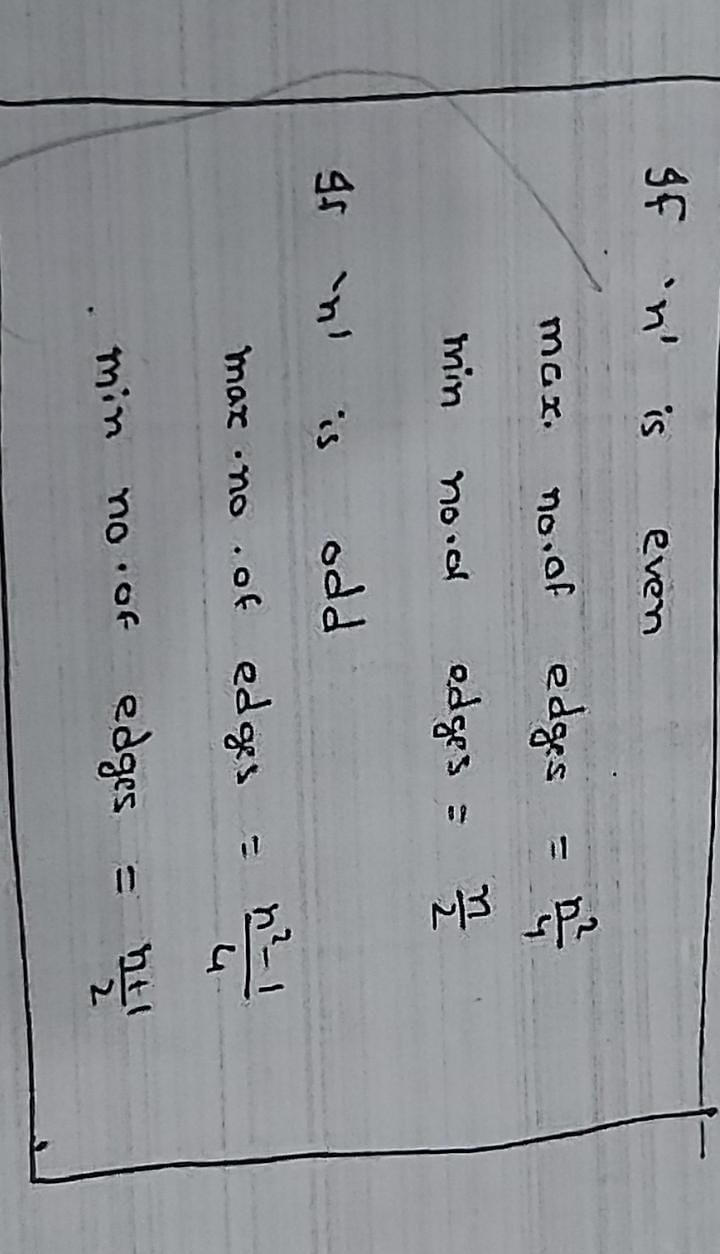 If 'n' is even
max. no. of edges = n²/4
min no. of edges = n/2
If 'n' is odd
max. no. of edges = n²-1/4
min no. of edges = n+1/2